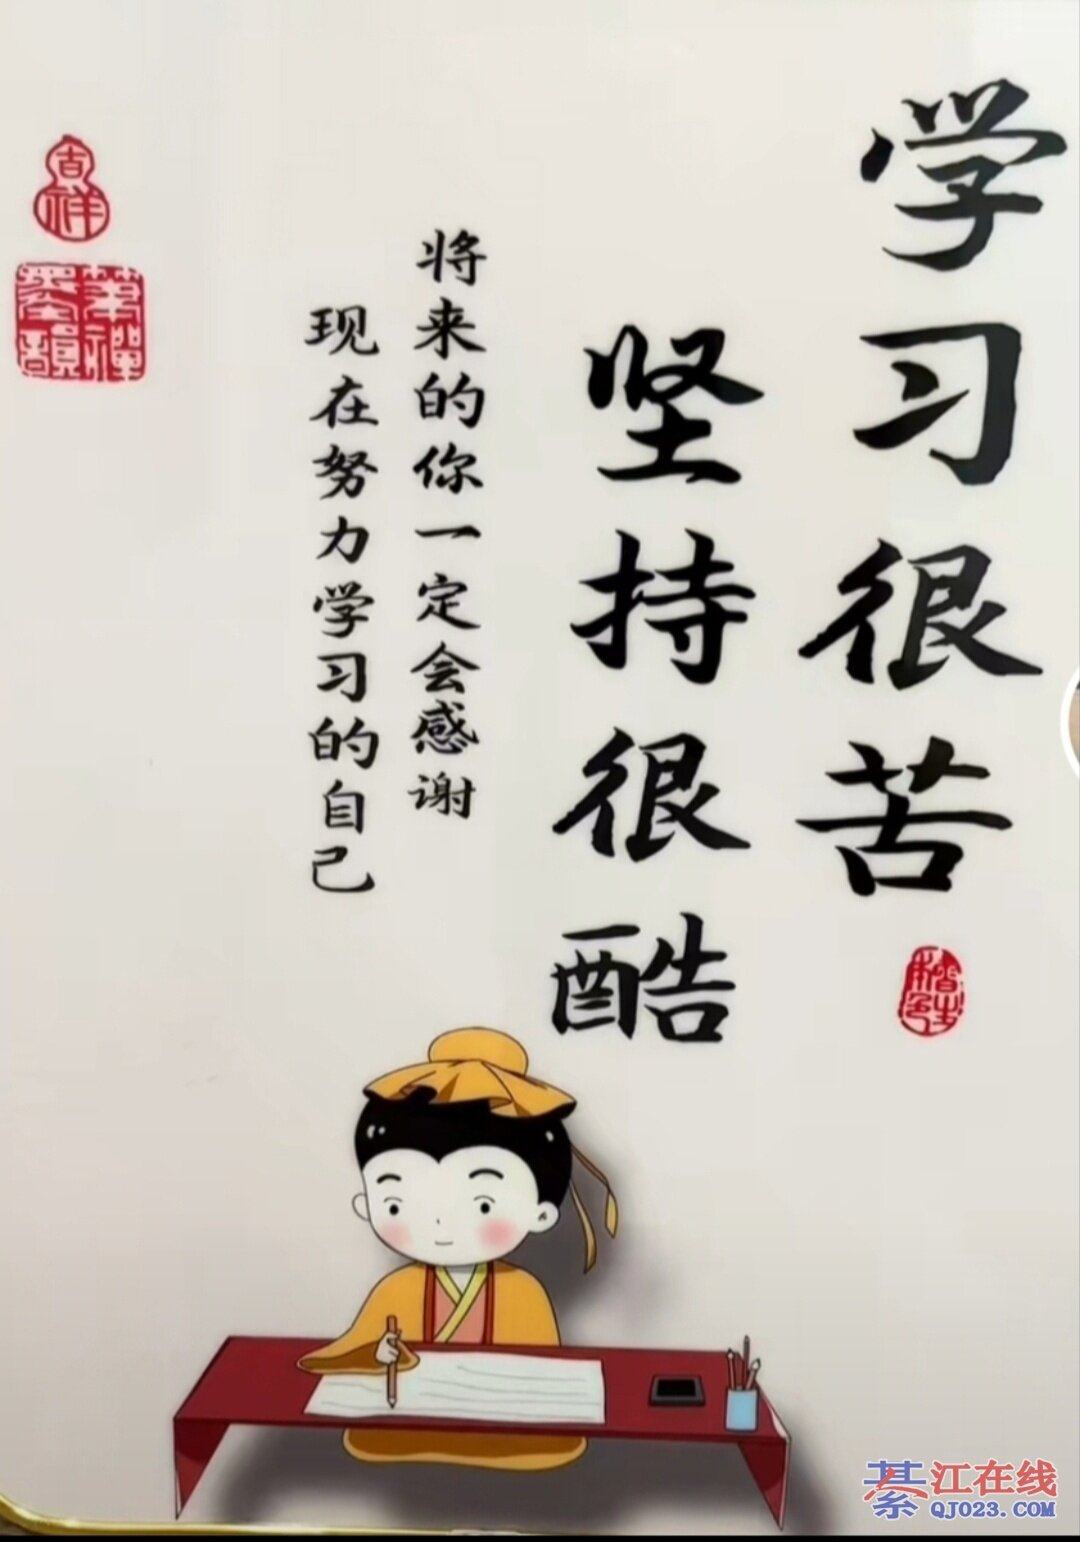 学习很苦
坚持很酷
将来的你一定会感谢
现在努力学习的自己
吉祥
笔禅墨韵
綦江在线
QJ023.COM